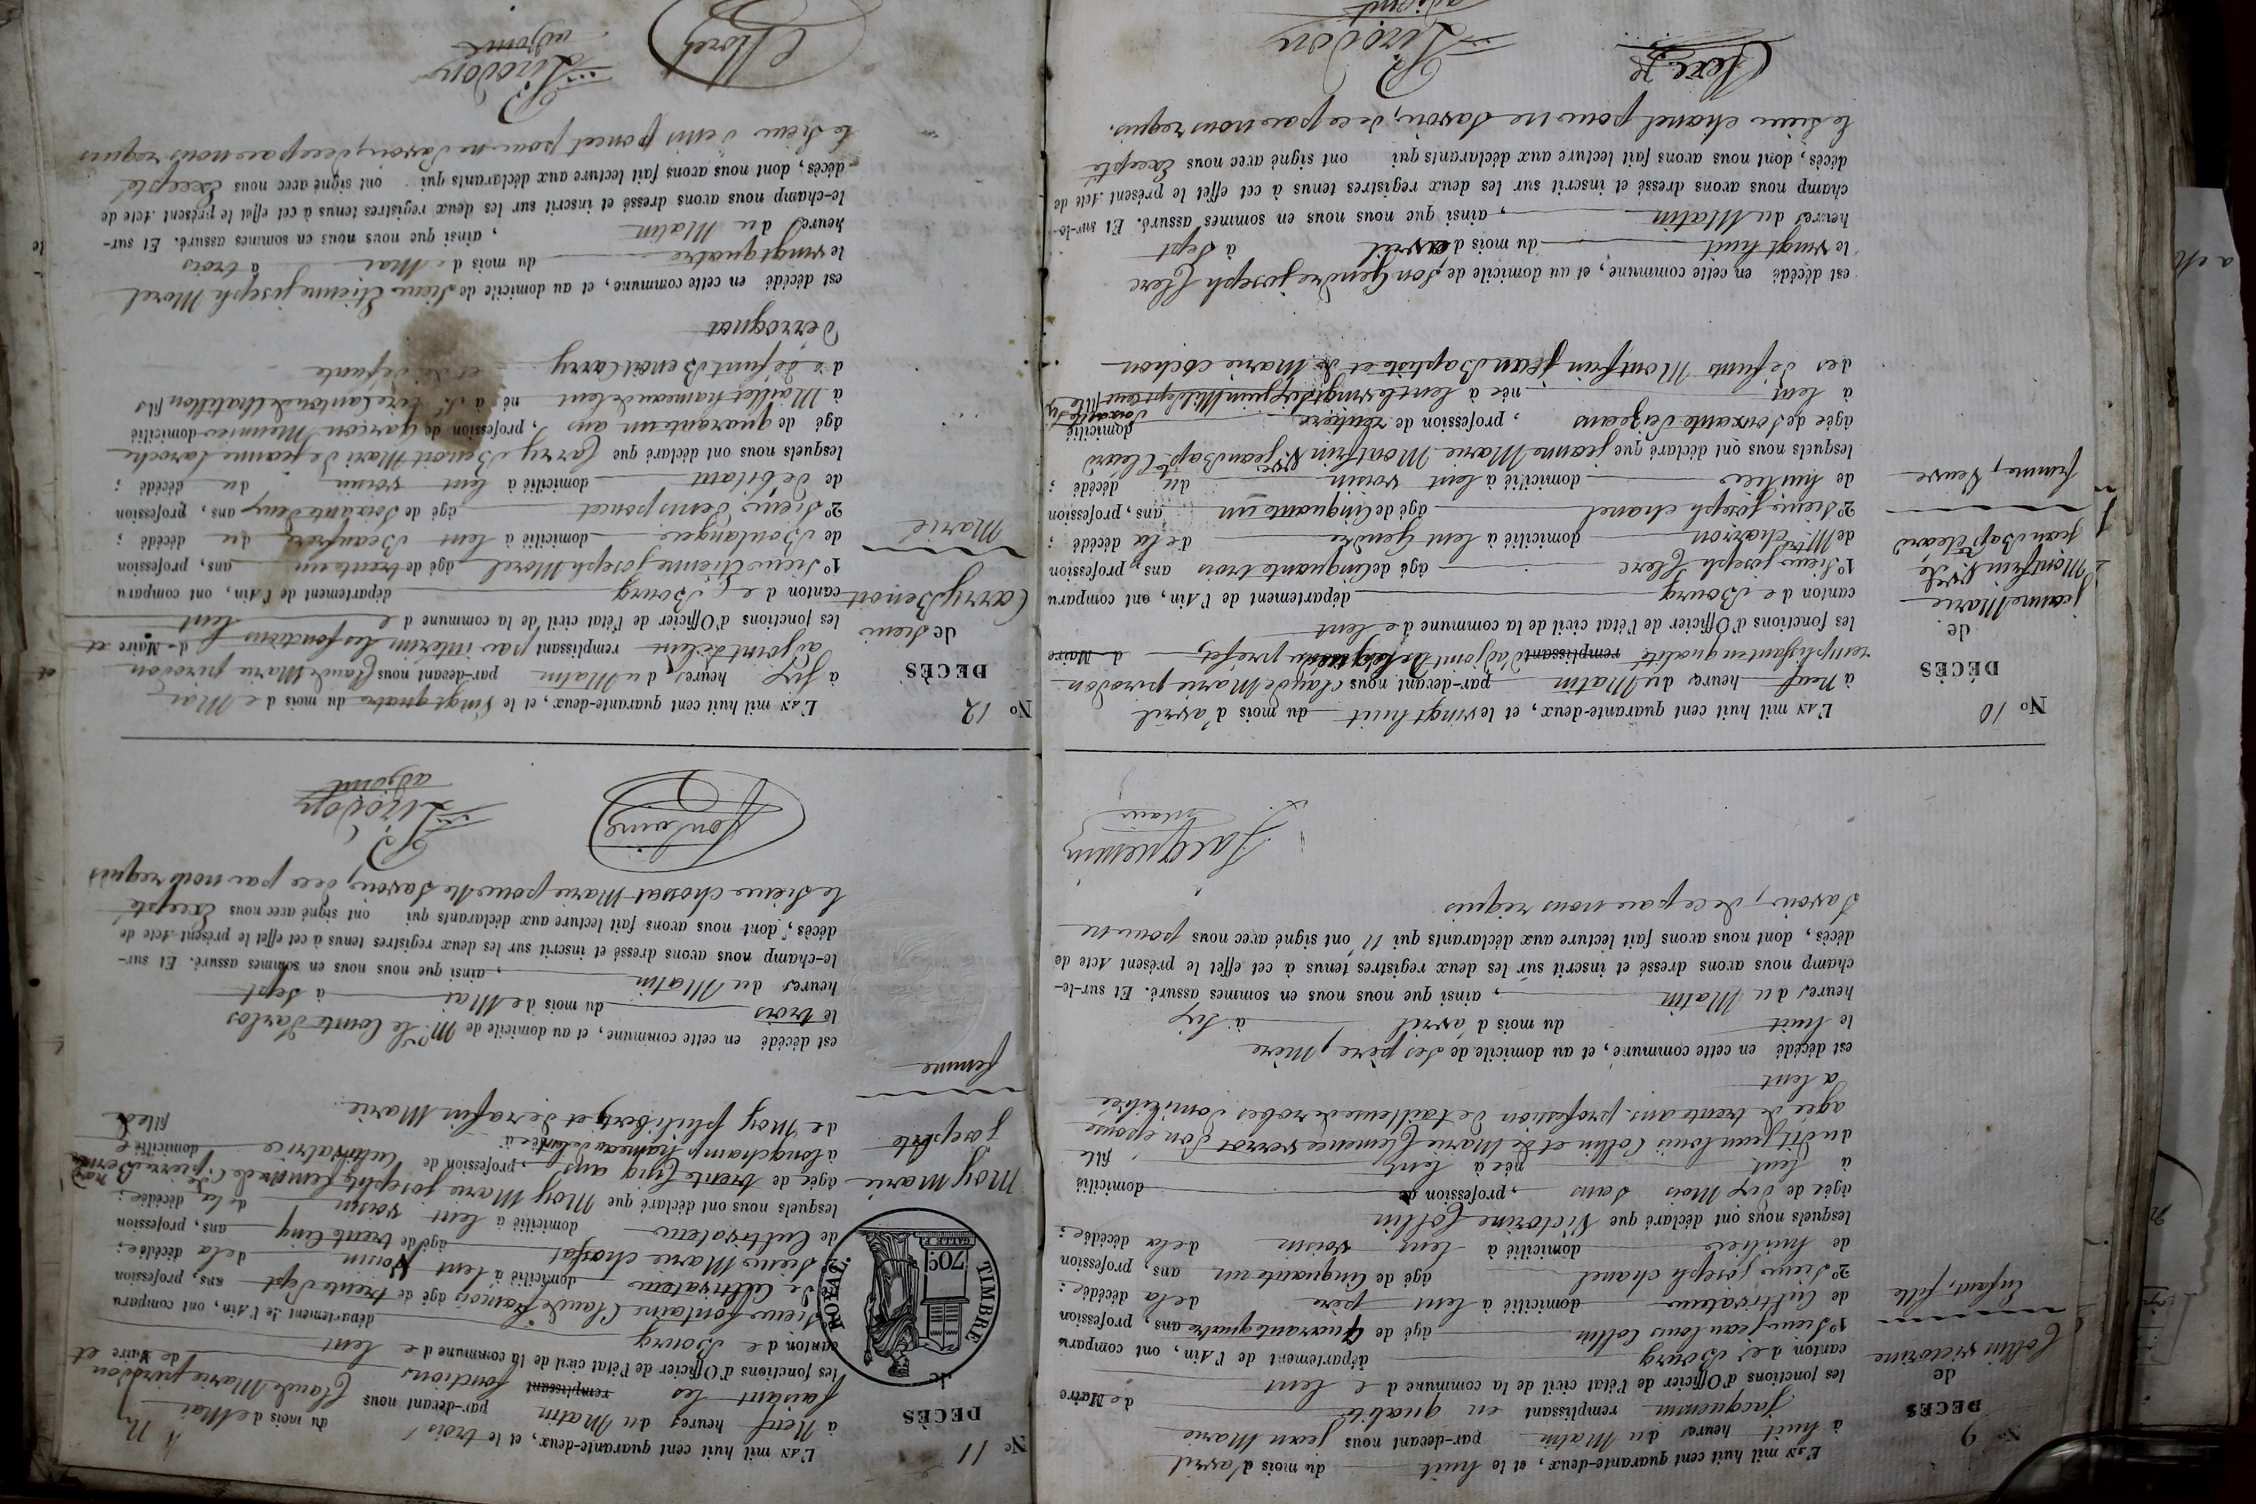 N° 9
DÉCÈS
de
Collin victorine
Enfant, fille
L'AN mil huit cent quarante-deux, et le huit du mois d'avril
à huit heures du Matin par-devant nous Jean Marie
Jacquemin remplissant en qualité de Maire
les fonctions d'Officier de l'état civil de la commune de lent
canton de Bourg département de l'Ain, ont comparu
1° Sieur jean louis Collin âgé de quarante quatre ans, profession
de Cultivateur domicilié à lent père de la décédée;
2° Sieur joseph chanel âgé de Cinquante un ans, profession
de huilier domicilié à lent voisin de la décédée;
lesquels nous ont déclaré que Victorine Collin
âgée de six Mois sans, profession de domicilié
à lent née à lent fille
du dit jean louis Collin et de Marie Clemence son épouse
agée de trente ans, profession de tailleuse de robes domiciliée
a lent
est décédé en cette commune, et au domicile de ses père, Mère
le huit du mois d'avril à six
heures du Matin, ainsi que nous nous en sommes assuré. Et sur-le-
champ nous avons dressé et inscrit sur les deux registres tenus à cet effet le présent Acte de
décès, dont nous avons fait lecture aux déclarants qui n'ont signé avec nous pour ne
Savoir, de ce par nous requis
Jacquemin
maire
N° 10
DÉCÈS
de
jeanne Marie
Montfrin Vve de
jean Bapte Cleard
femme, Veuve
L'AN mil huit cent quarante-deux, et le vingt huit du mois d'avril
à Neuf heures du Matin par-devant nous Claude Marie pirodon
remplissant en qualité remplissant d'adjoint de Maire
les fonctions d'Officier de l'état civil de la commune de lent
canton de Bourg département de l'Ain, ont comparu
1° Sieur joseph Clerc âgé de Cinquante trois ans, profession
de Mtre charron domicilié à lent Gendre de la décédé;
2° Sieur joseph chanel âgé de Cinquante un ans, profession
de huilier domicilié à lent voisin du décédé;
lesquels nous ont déclaré que jeanne Marie Montfrin Vve jean Bapte Cleard
âgée de Soixante Seize ans, profession de rentière domicilié
à lent née à lent le vingt six juin Mil Sept cent Soixante six fille
des defunts Montfrin jean Baptiste et de Marie cochon
est décédé en cette commune, et au domicile de son Gendre joseph Clerc
le vingt huit du mois d'avril à Sept
heures du Matin, ainsi que nous nous en sommes assuré. Et sur-le-
champ nous avons dressé et inscrit sur les deux registres tenus à cet effet le présent Acte de
décès, dont nous avons fait lecture aux déclarants qui ont signé avec nous Excepté
le Sieur chanel pour ne Savoir, de ce par nous requis.
Clerc J
Pirodon
adjoint
N° 11
DÉCÈS
de
TIMBRE ROYAL
70c
Moy marie
josephte
femme
L'AN mil huit cent quarante-deux, et le trois du mois de Mai
à Neuf heures du Matin par-devant nous Claude Marie pirodon
faisant les remplissant fonctions de Maire et
les fonctions d'Officier de l'état civil de la commune de lent
canton de Bourg département de l'Ain, ont comparu
Sieur fontaine Claude françois âgé de trente Sept ans, profession
de Cultivateur domicilié à lent Voisin de la décédée;
Sieur Marie chossat âgé de trente Cinq ans, profession
de Cultivateur domicilié à lent voisin de la décédée;
lesquels nous ont déclaré que Moy Marie josephte femme de pierre
âgée de trente Cinq ans, profession de Cultivatrice domiciliée
à longchamp hameau de lent née à fille
de Moy philibert et de rafin Marie
est décédé en cette commune, et au domicile de Mr le Comte
le trois du mois de Mai à Sept
heures du Matin, ainsi que nous nous en sommes assuré. Et sur-
le-champ nous avons dressé et inscrit sur les deux registres tenus à cet effet le présent Acte de
décès, dont nous avons fait lecture aux déclarants qui ont signé avec nous Excepté
le Sieur chossat Marie pour Ne Savoir, de ce par nous requis
fontaine
Pirodon
adjoint
N° 12
DÉCÈS
de Sieur
Carry Benoit
Marié
L'AN mil huit cent quarante-deux, et le Vingt quatre du mois de Mai
à six heures du Matin par-devant nous Claude Marie pirodon
adjoint de lent remplissant par interim les fonctions de Maire et
les fonctions d'Officier de l'état civil de la commune de lent
canton de Bourg département de l'Ain, ont comparu
1° Sieur Etienne joseph Morel âgé de trente un ans, profession
de Boulanger domicilié à lent Beaufrère du décédé;
2° Sieur Denis poncet âgé de Soixante deux ans, profession
de debitant domicilié à lent voisin du décédé;
lesquels nous ont déclaré que Carry Benoit Mari de jeanne laroche
âgé de quarante un ans, profession de Garçon Meunier domicilié
à Maillet hameau de lent né à Canton de Chatillon fils
de defunt Benoit Carry et de defunte
Derognat
est décédé en cette commune, et au domicile de Sieur Etienne joseph Morel
le vingt quatre du mois de Mai à trois
heures du Matin, ainsi que nous nous en sommes assuré. Et sur-
le-champ nous avons dressé et inscrit sur les deux registres tenus à cet effet le présent Acte de
décès, dont nous avons fait lecture aux déclarants qui ont signé avec nous Excepté
le Sieur Denis poncet pour ne Savoir, de ce par nous requis
Morel
Pirodon
adjoint